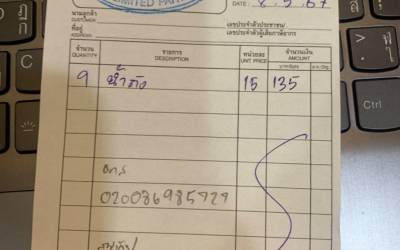 LIMITED PART
DATE 8.5.67
นามลูกค้า
CUSTOMER
เลขประจำตัวประชาชน/
ที่อยู่
ADDRESS
เลขประจำตัวผู้เสียภาษีอากร
จำนวน รายการ หน่วยละ จำนวนเงิน
QUANTITY DESCRIPTION UNIT PRICE AMOUNT
9 น้ำถัง 15 135
020036985929
Ctrl
C